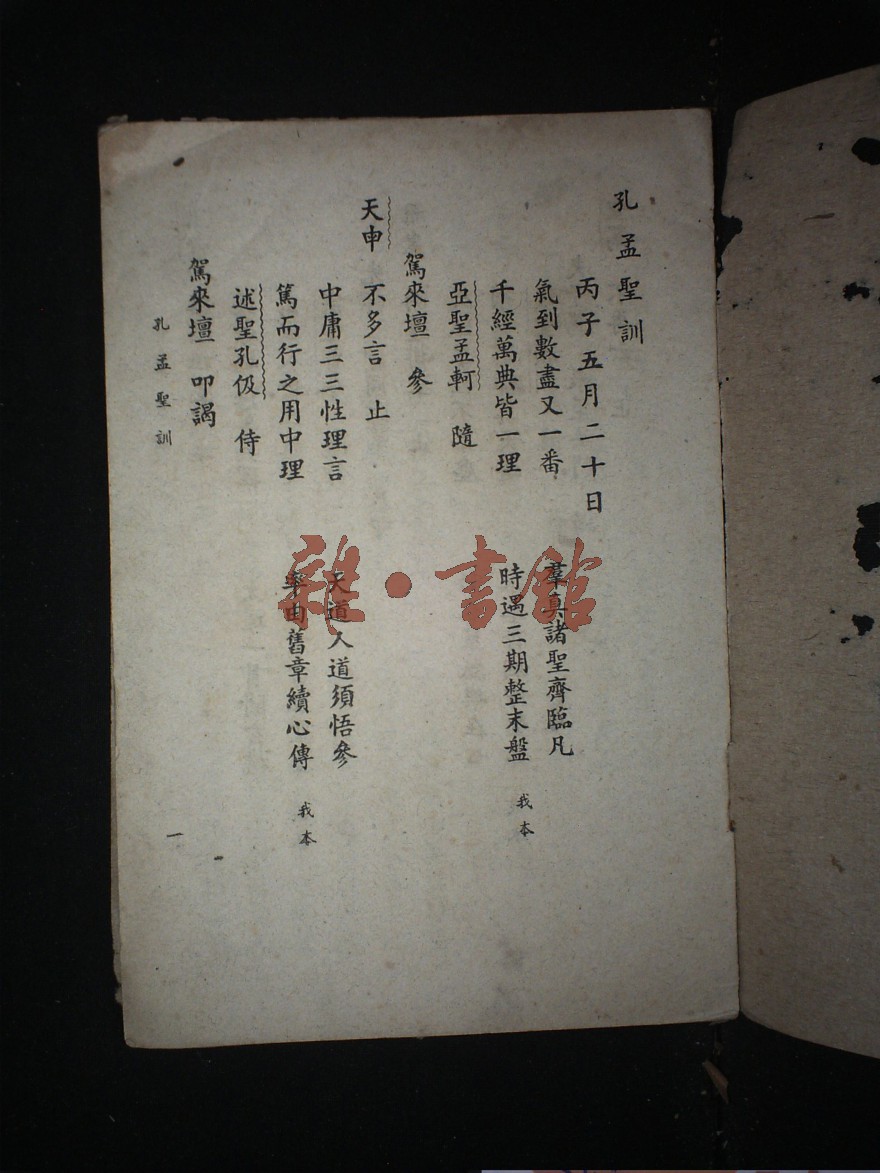 孔孟聖訓
丙子五月二十日
氣到數盡又一番 羣真諸聖齊臨凡
千經萬典皆一理 時遇三期整末盤 我本
亞聖孟軻 隨
駕來壇 參
天申 不多言 止
中庸三三性理言 天道人道須悟參
篤而行之用中理 率由舊章續心傳 我本
述聖孔伋 侍
駕來壇 叩謁
孔孟聖訓 一
雜·書館